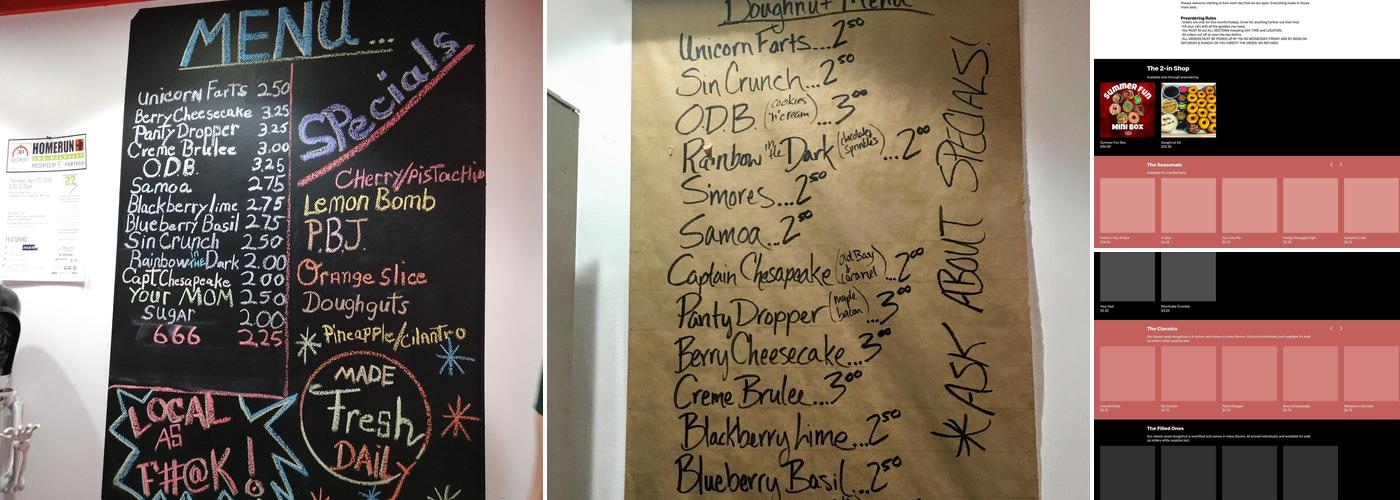 MENU...
Unicorn Farts 2.50
Berry Cheesecake 3.25
Panty Dropper 3.25
Creme Brulee 3.00
O.D.B. 3.25
Samoa 2.75
Blackberry lime 2.75
Blueberry Basil 2.75
Sin Crunch 2.50
Rainbow in the Dark 2.00
Capt. Chesapeake 2.00
Your MOM 2.50
Sugar 2.00
666 2.25
LOCAL
AS
F*#@K!
Specials
Cherry/Pistachio
Lemon Bomb
P.B.J.
Orange Slice
Doughguts
Pineapple/cilantro
MADE
Fresh
DAILY
HOMERUN
FEATURING
Doughnut Menu
Unicorn Farts...2.50
Sin Crunch...2.50
O.D.B. (cookies 'n' cream)...3.00
Rainbow in the Dark (chocolate sprinkles)...2.00
S'mores...2.50
Samoa...2.50
Captain Chesapeake (Old Bay & caramel)...2.00
Panty Dropper (maple bacon)...3.00
Berry Cheesecake...3.00
Creme Brulee...3.00
Blackberry Lime...2.50
Blueberry Basil...2.50
*ASK ABOUT SPECIALS!
Preordering Rules
The 2-in Shop
Available only through preordering.
SUMMER FUN
MINI BOX
Summer Fun Box
Doughnut Kit
The Seasonals
Available for a limited time.
Key Lime Pie
Your Dad
$3.25
Shortcake Crumble
$3.25
The Classics
Unicorn Farts
Sin Crunch
Panty Dropper
Berry Cheesecake
Rainbow in the Dark
The Filled Ones